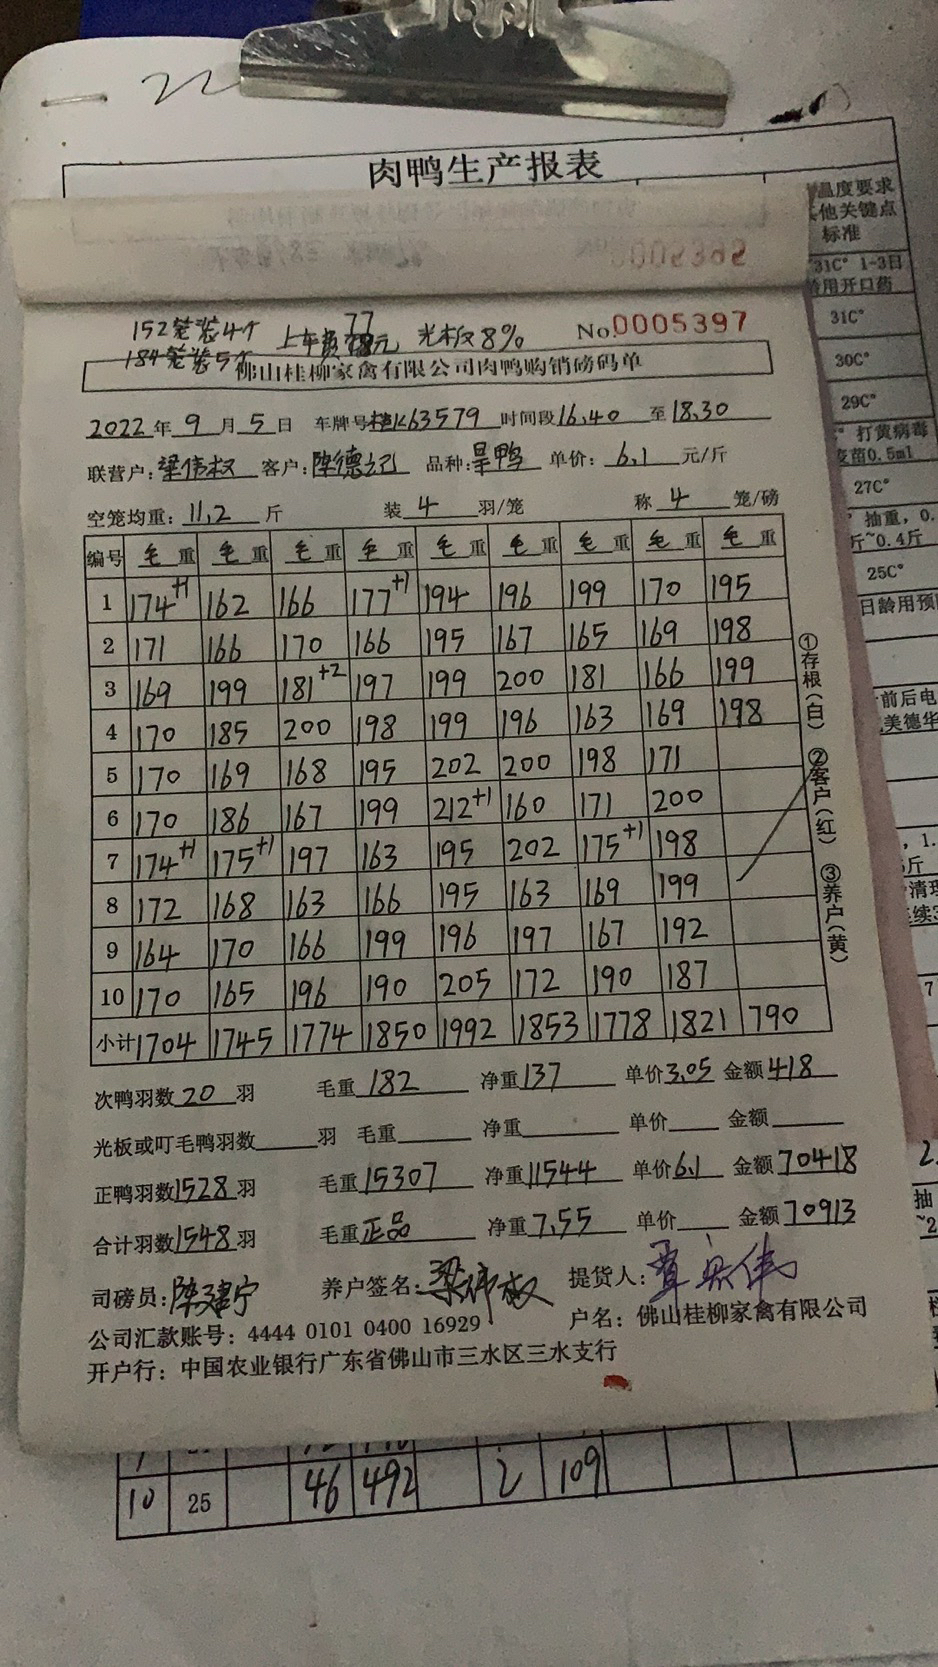 22
肉鸭生产报表
温度要求
其他关键点
标准
31C° 1-3日
龄用开口药
31C°
30C°
29C°
打黄病毒
疫苗0.5ml
27C°
抽重，0.
斤~0.4斤
25C°
日龄用预
前后电
美德华
0005398
152笼装4个 上车费 77元 光板8%
184笼装5个
No.0005397
佛山桂柳家禽有限公司肉鸭购销磅码单
2022年9月5日 车牌号桂K63579 时间段16.40至18.30
联营户：梁伟权 客户：陈德记 品种：旱鸭 单价：6.1元/斤
空笼均重：11.2斤 装4羽/笼 称4笼/磅
编号 毛重 毛重 毛重 毛重 毛重 毛重 毛重 毛重 毛重
1 174+1 162 166 177+1 194 196 199 170 195
2 171 166 170 166 195 167 165 169 198
3 169 199 181+2 197 199 200 181 166 199
4 170 185 200 198 199 196 163 169 198
5 170 169 168 195 202 200 198 171
6 170 186 167 199 212+1 160 171 200
7 174+1 175+1 197 163 195 202 175+1 198
8 172 168 163 166 195 163 169 199
9 164 170 166 199 196 197 167 192
10 170 165 196 190 205 172 190 187
小计 1704 1745 1774 1850 1992 1853 1778 1821 790
①存根（白） ②客户（红） ③养户（黄）
次鸭羽数20羽 毛重182 净重137 单价3.05 金额418
光板或叮毛鸭羽数 羽 毛重 净重 单价 金额
正鸭羽数1528羽 毛重15307 净重11544 单价6.1 金额70418
合计羽数1548羽 毛重正品 净重7.55 单价 金额70913
司磅员：陈建宁 养户签名：梁伟权 提货人：
公司汇款账号：4444 0101 0400 16929 户名：佛山桂柳家禽有限公司
开户行：中国农业银行广东省佛山市三水区三水支行
10 25 46 492 2 109